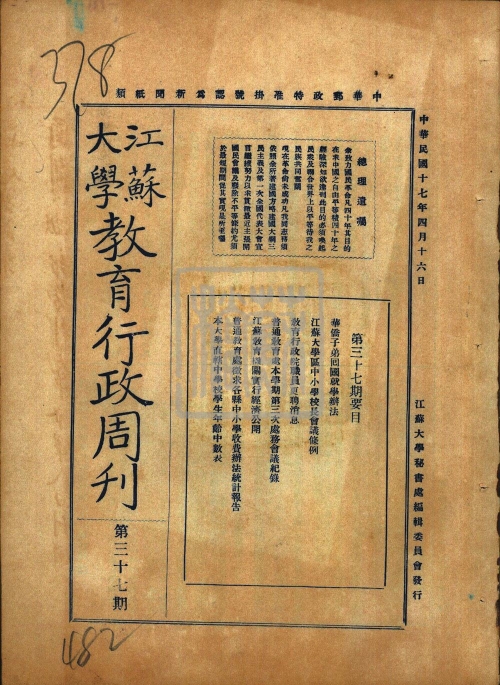 378
中華郵政特准掛號認爲新聞紙類
中華民國十七年四月十六日
江蘇大學秘書處編輯委員會發行
總理遺囑
余致力國民革命凡四十年其目的
在求中國之自由平等積四十年之
經驗深知欲達到此目的必須喚起
民衆及聯合世界上以平等待我之
民族共同奮鬭
現在革命尚未成功凡我同志務須
依照余所著建國方略建國大綱三
民主義及第一次全國代表大會宣
言繼續努力以求貫徹最近主張開
國民會議及廢除不平等條約尤須
於最短期間促其實現是所至囑
第三十七期要目
華僑子弟回國就學辦法
江蘇大學區中小學校長會議條例
教育行政院職員更聘消息
普通教育處本學期第三次處務會議紀錄
江蘇教育機關實行經濟公開
普通教育處徵求各縣中小學收費辦法統計報告
本大學直轄中學校學生年齡中數表
江蘇
大學
教育行政周刊
第三十七期
482